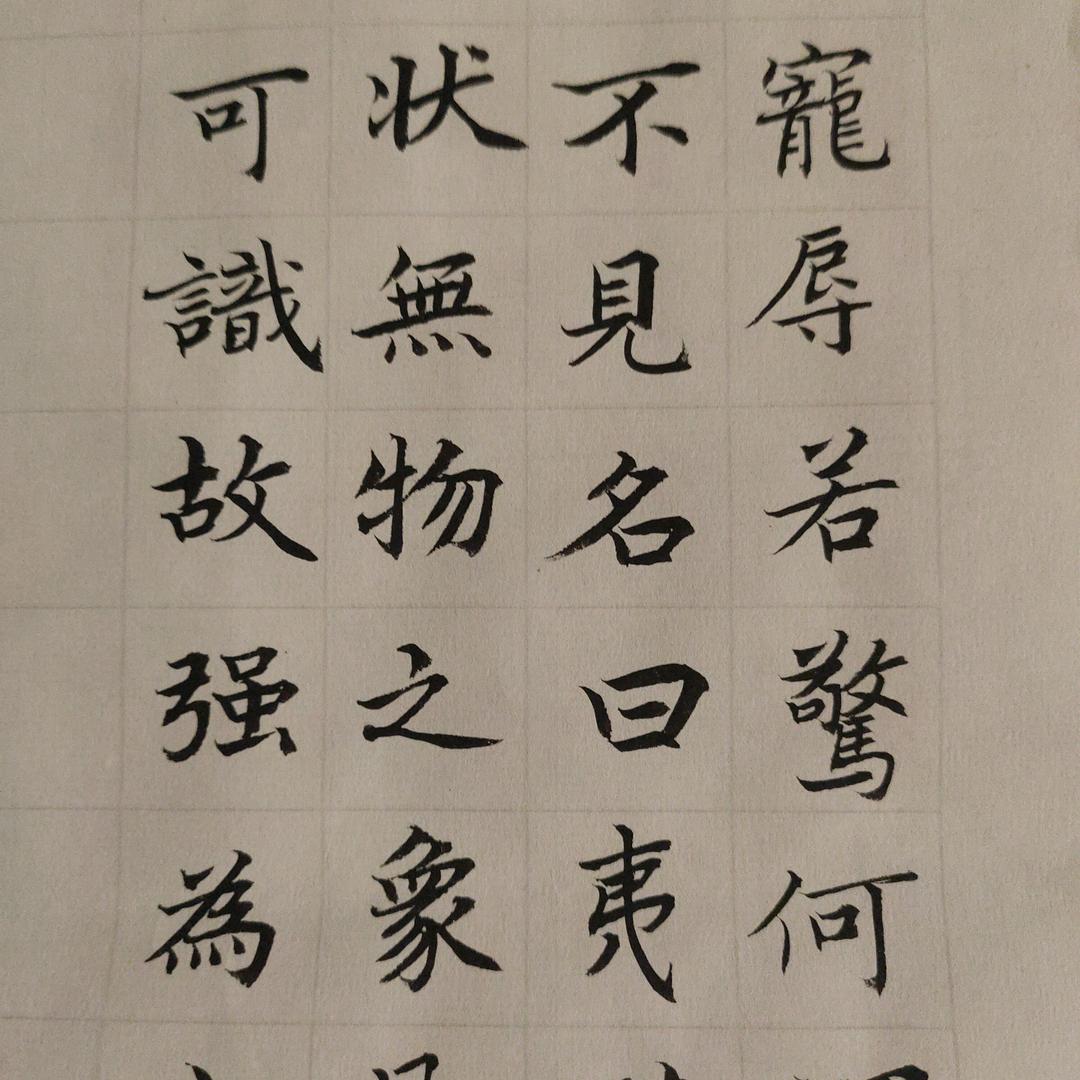 寵辱若驚何
不見名曰夷
状無物之象
可識故强為